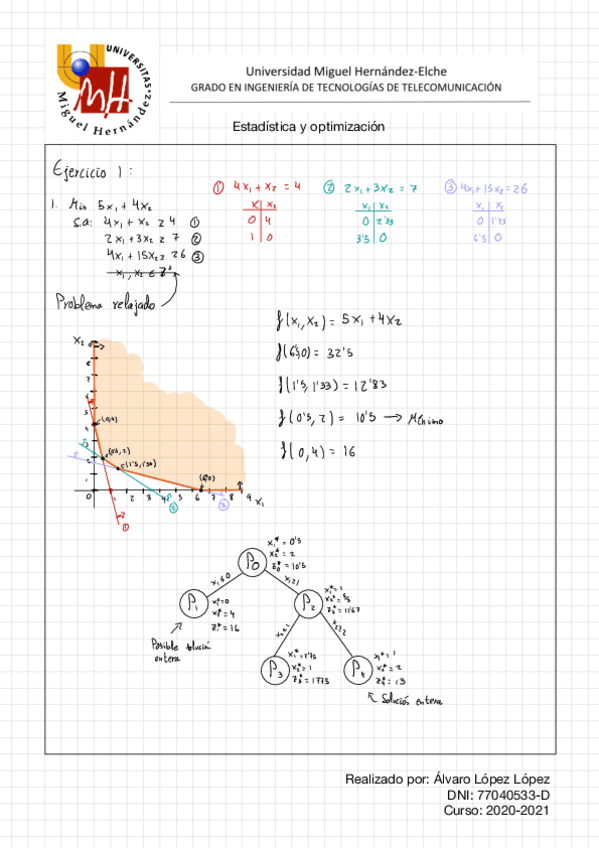 UNIVERSITAS
Miguel Hernández
Universidad Miguel Hernández-Elche
GRADO EN INGENIERÍA DE TECNOLOGÍAS DE TELECOMUNICACIÓN
Estadística y optimización
Ejercicio 1:
1. Min 5x₁ + 4x₂
s.a: 4x₁ + x₂ ≥ 4 ①
2x₁ + 3x₂ ≥ 7 ②
4x₁ + 15x₂ ≥ 26 ③
x₁, x₂ ∈ Z⁺
① 4x₁ + x₂ = 4
x₁ x₂
0 4
1 0
② 2x₁ + 3x₂ = 7
x₁ x₂
0 2'33
3'5 0
③ 4x₁ + 15x₂ = 26
x₁ x₂
0 1'73
6'5 0
Problema relajado
f(x₁, x₂) = 5x₁ + 4x₂
f(6'5,0) = 32'5
f(1'5, 1'33) = 12'83
f(0'5, 2) = 10'5 → Mínimo
f(0, 4) = 16
x₂
(0,4)
(0'5, 2)
(1'5, 1'33)
(6'5,0)
0 1 2 3 4 5 6 7 8 9 x₁
① ② ③
P₀
x₁* = 0'5
x₂* = 2
z₀* = 10'5
x₁≤0
x₁≥1
P₁
x₁* = 0
x₂* = 4
z₁* = 16
P₂
x₁* = 1
x₂* = 5/3
z₂* = 11'67
Posible solución
entera
x₂≤1
x₂≥2
P₃
x₁* = 2'75
x₂* = 1
z₃* = 17'75
P₄
x₁* = 1
x₂* = 2
z₄* = 13
Solución entera
Realizado por: Álvaro López López
DNI: 77040533-D
Curso: 2020-2021